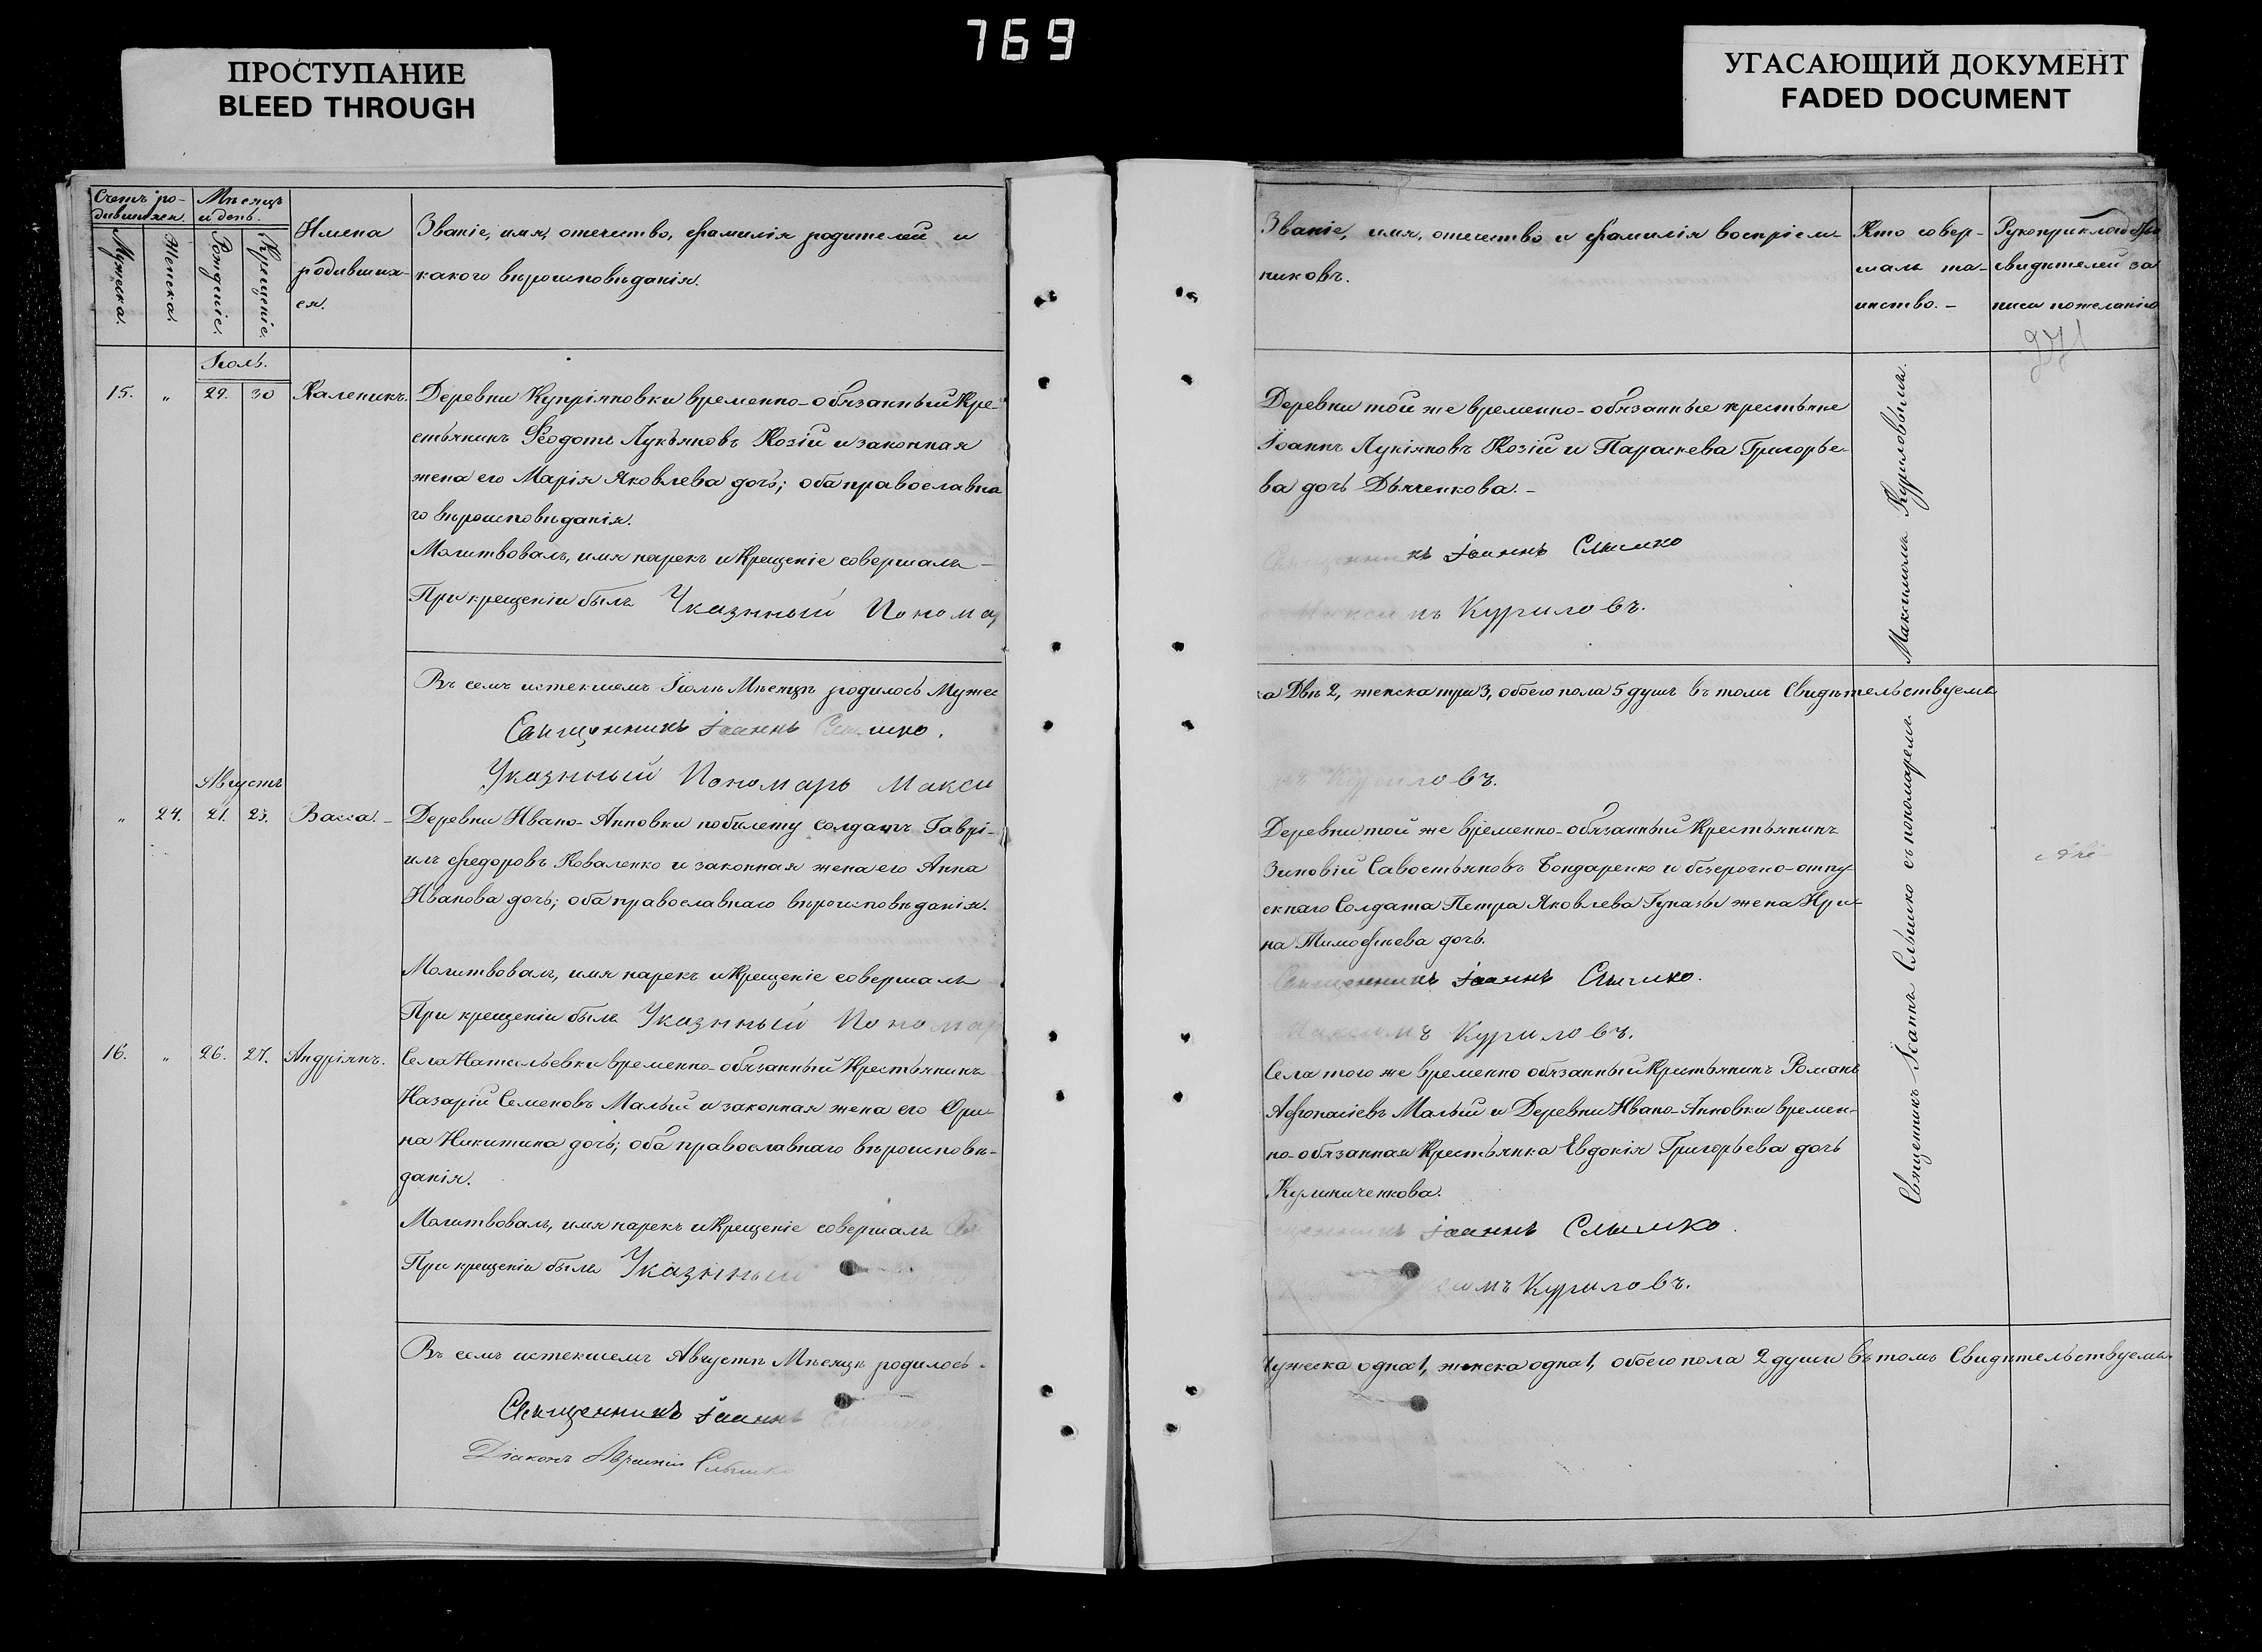 769
ПРОСТУПАНИЕ
BLEED THROUGH
УГАСАЮЩИЙ ДОКУМЕНТ
FADED DOCUMENT
Счетъ ро-
дившихся.
Мѣсяцъ
и день.
Мужеска.
Женска.
Рожденіе.
Крещеніе.
Имена
родивших-
ся.
Званіе, имя, отечество, фамилія родителей, и
какого вѣроисповѣданія.
Іюль.
15. „ 29. 30 Каленикъ.
Деревни Купріяновки временно-обязанный Кре-
стьянинъ Ѳеодотъ Лукьяновъ Козій и законная
жена его Марія Яковлева дочь; оба православна
го вѣроисповѣданія.
Молитвовалъ, имя нарекъ и Крещеніе совершалъ
При крещеніи былъ Указнный Пономар
Въ семъ истекшемъ Іюлѣ Мѣсяцѣ родилось Мужес
Священникъ Іоаннъ Слышко.
Указнный Пономарь Макси
Августъ
„ 24. 21. 23. Васса. -
Деревни Ивано-Анновки по билету солдатъ Гаврі-
илъ Федоровъ Коваленко и законная жена его Анна
Иванова дочь; оба православнаго вѣроисповѣданія.
Молитвовалъ, имя нарекъ и Крещеніе совершалъ
При крещеніи былъ Указнный Пономар
16. „ 26. 27. Андріянъ.
Села Натальевки временно-обязанный Крестьянинъ
Назарій Семеновъ Малый и законная жена его Ори-
на Никитина дочь; оба православнаго вѣроисповѣ-
данія.
Молитвовалъ, имя нарекъ и Крещеніе совершалъ Свя
При крещеніи былъ Указнный
Въ семъ истекшемъ Августѣ Мѣсяцѣ родилось
Священникъ Іоаннъ Слышко
Діаконъ Слышко
Званіе, имя, отечество и фамилія воспріем-
никовъ.
Кто совер-
шалъ та-
инство. -
Рукоприкладство
свидѣтелей за
писи по желанію
271
Деревни той же временно-обязанные крестьяне
Іоаннъ Лукіяновъ Козій и Параскева Григорье-
ва дочь Дьяченкова. -
Священникъ Іоаннъ Слышко
Максимъ Куриловъ.
ка Двѣ 2, женска три 3, обоего пола 5 душъ въ томъ Свидѣтельствуемъ
мъ Куриловъ.
Деревни той же временно-обязанный Крестьянинъ
Зиновій Савостьяновъ Бондаренко и безсрочно-отпу-
скнаго Солдата Петра Яковлева жена Ири-
на Тимофѣева дочь.
Священникъ Іоаннъ Слышко.
Максимъ Куриловъ.
Села того же временно обязанный Крестьянинъ Романъ
Афонасіевъ Малый и Деревни Ивано-Анновки времен-
но-обязанная Крестьянка Евдокія Григорьева дочь
Кулиниченкова.
щенникъ Іоаннъ Слышко.
симъ Куриловъ.
Мужеска одна 1, женска одна 1, обоего пола 2 души въ томъ Свидѣтельствуемъ.
Священникъ Іоаннъ Слышко съ пономаремъ Максимомъ Куриловымъ.